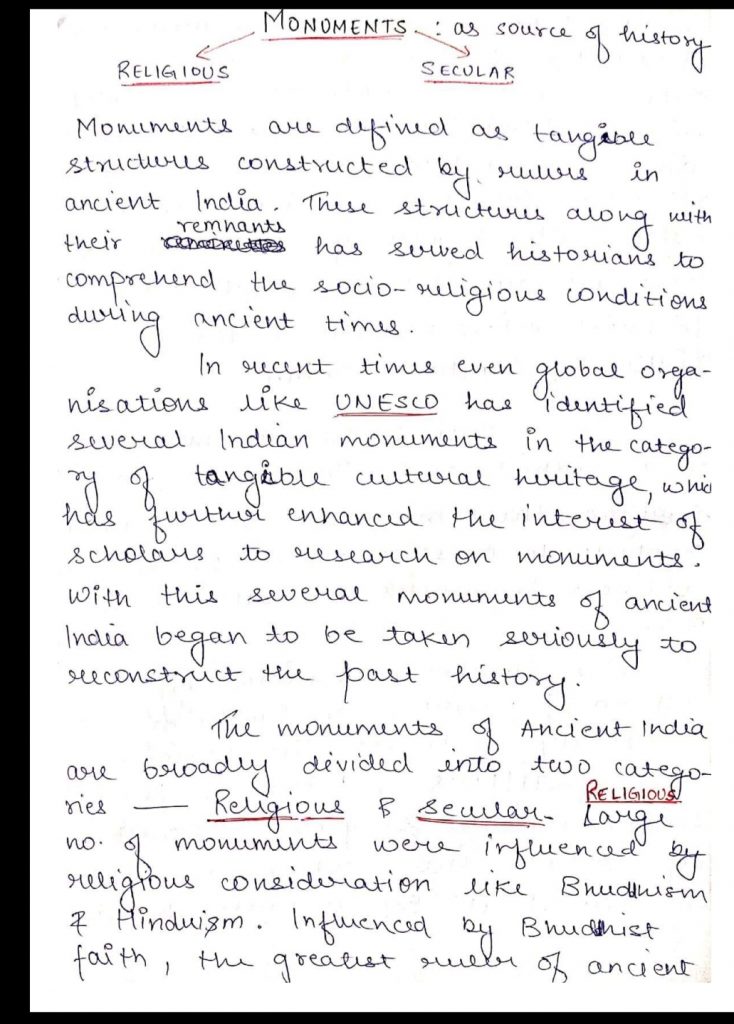 MONOMENTS : as source of history
RELIGIOUS SECULAR
Monuments are defined as tangible
structures constructed by rulers in
ancient India. These structures along with
remnants
their has served historians to
comprehend the socio-religious conditions
during ancient times.
In recent times even global orga-
nisations like UNESCO has identified
several Indian monuments in the catego-
ry of tangible cultural heritage, whic
has further enhanced the interest of
scholars to research on monuments.
With this several monuments of ancient
India began to be taken seriously to
reconstruct the past history.
The monuments of Ancient India
are broadly divided into two catego-
ries — Religious & Secular. RELIGIOUS Large
no. of monuments were influenced by
religious consideration like Bhuddhism
& Hinduism. Influenced by Bhuddhist
faith, the greatest ruler of ancient